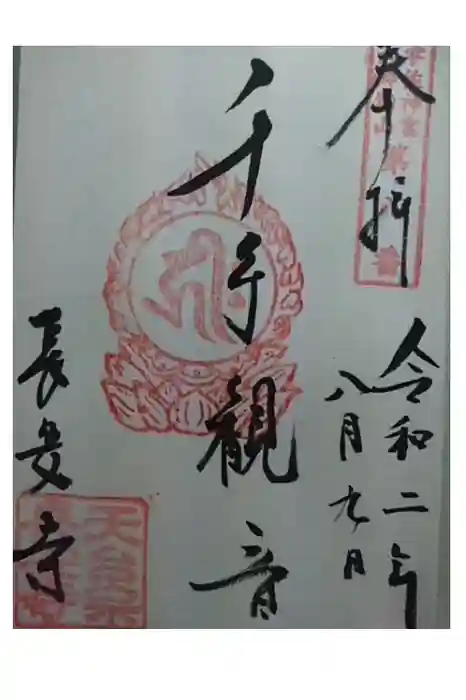 奉拝
令和二年
八月九日
千手観音
長安寺
天台宗